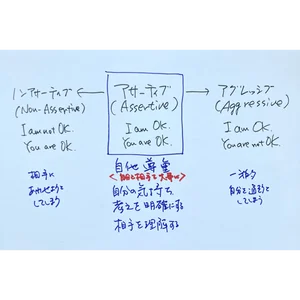 ノンアサーティブ
(Non-Assertive)
I am not OK.
You are OK.
相手に
あわせようと
してしまう
アサーティブ
(Assertive)
I am OK.
You are OK.
自他尊重
自分の気持ち、
考えを明確にする
相手を理解する
アグレッシブ
(Aggressive)
I am OK.
You are not OK.
してしまう